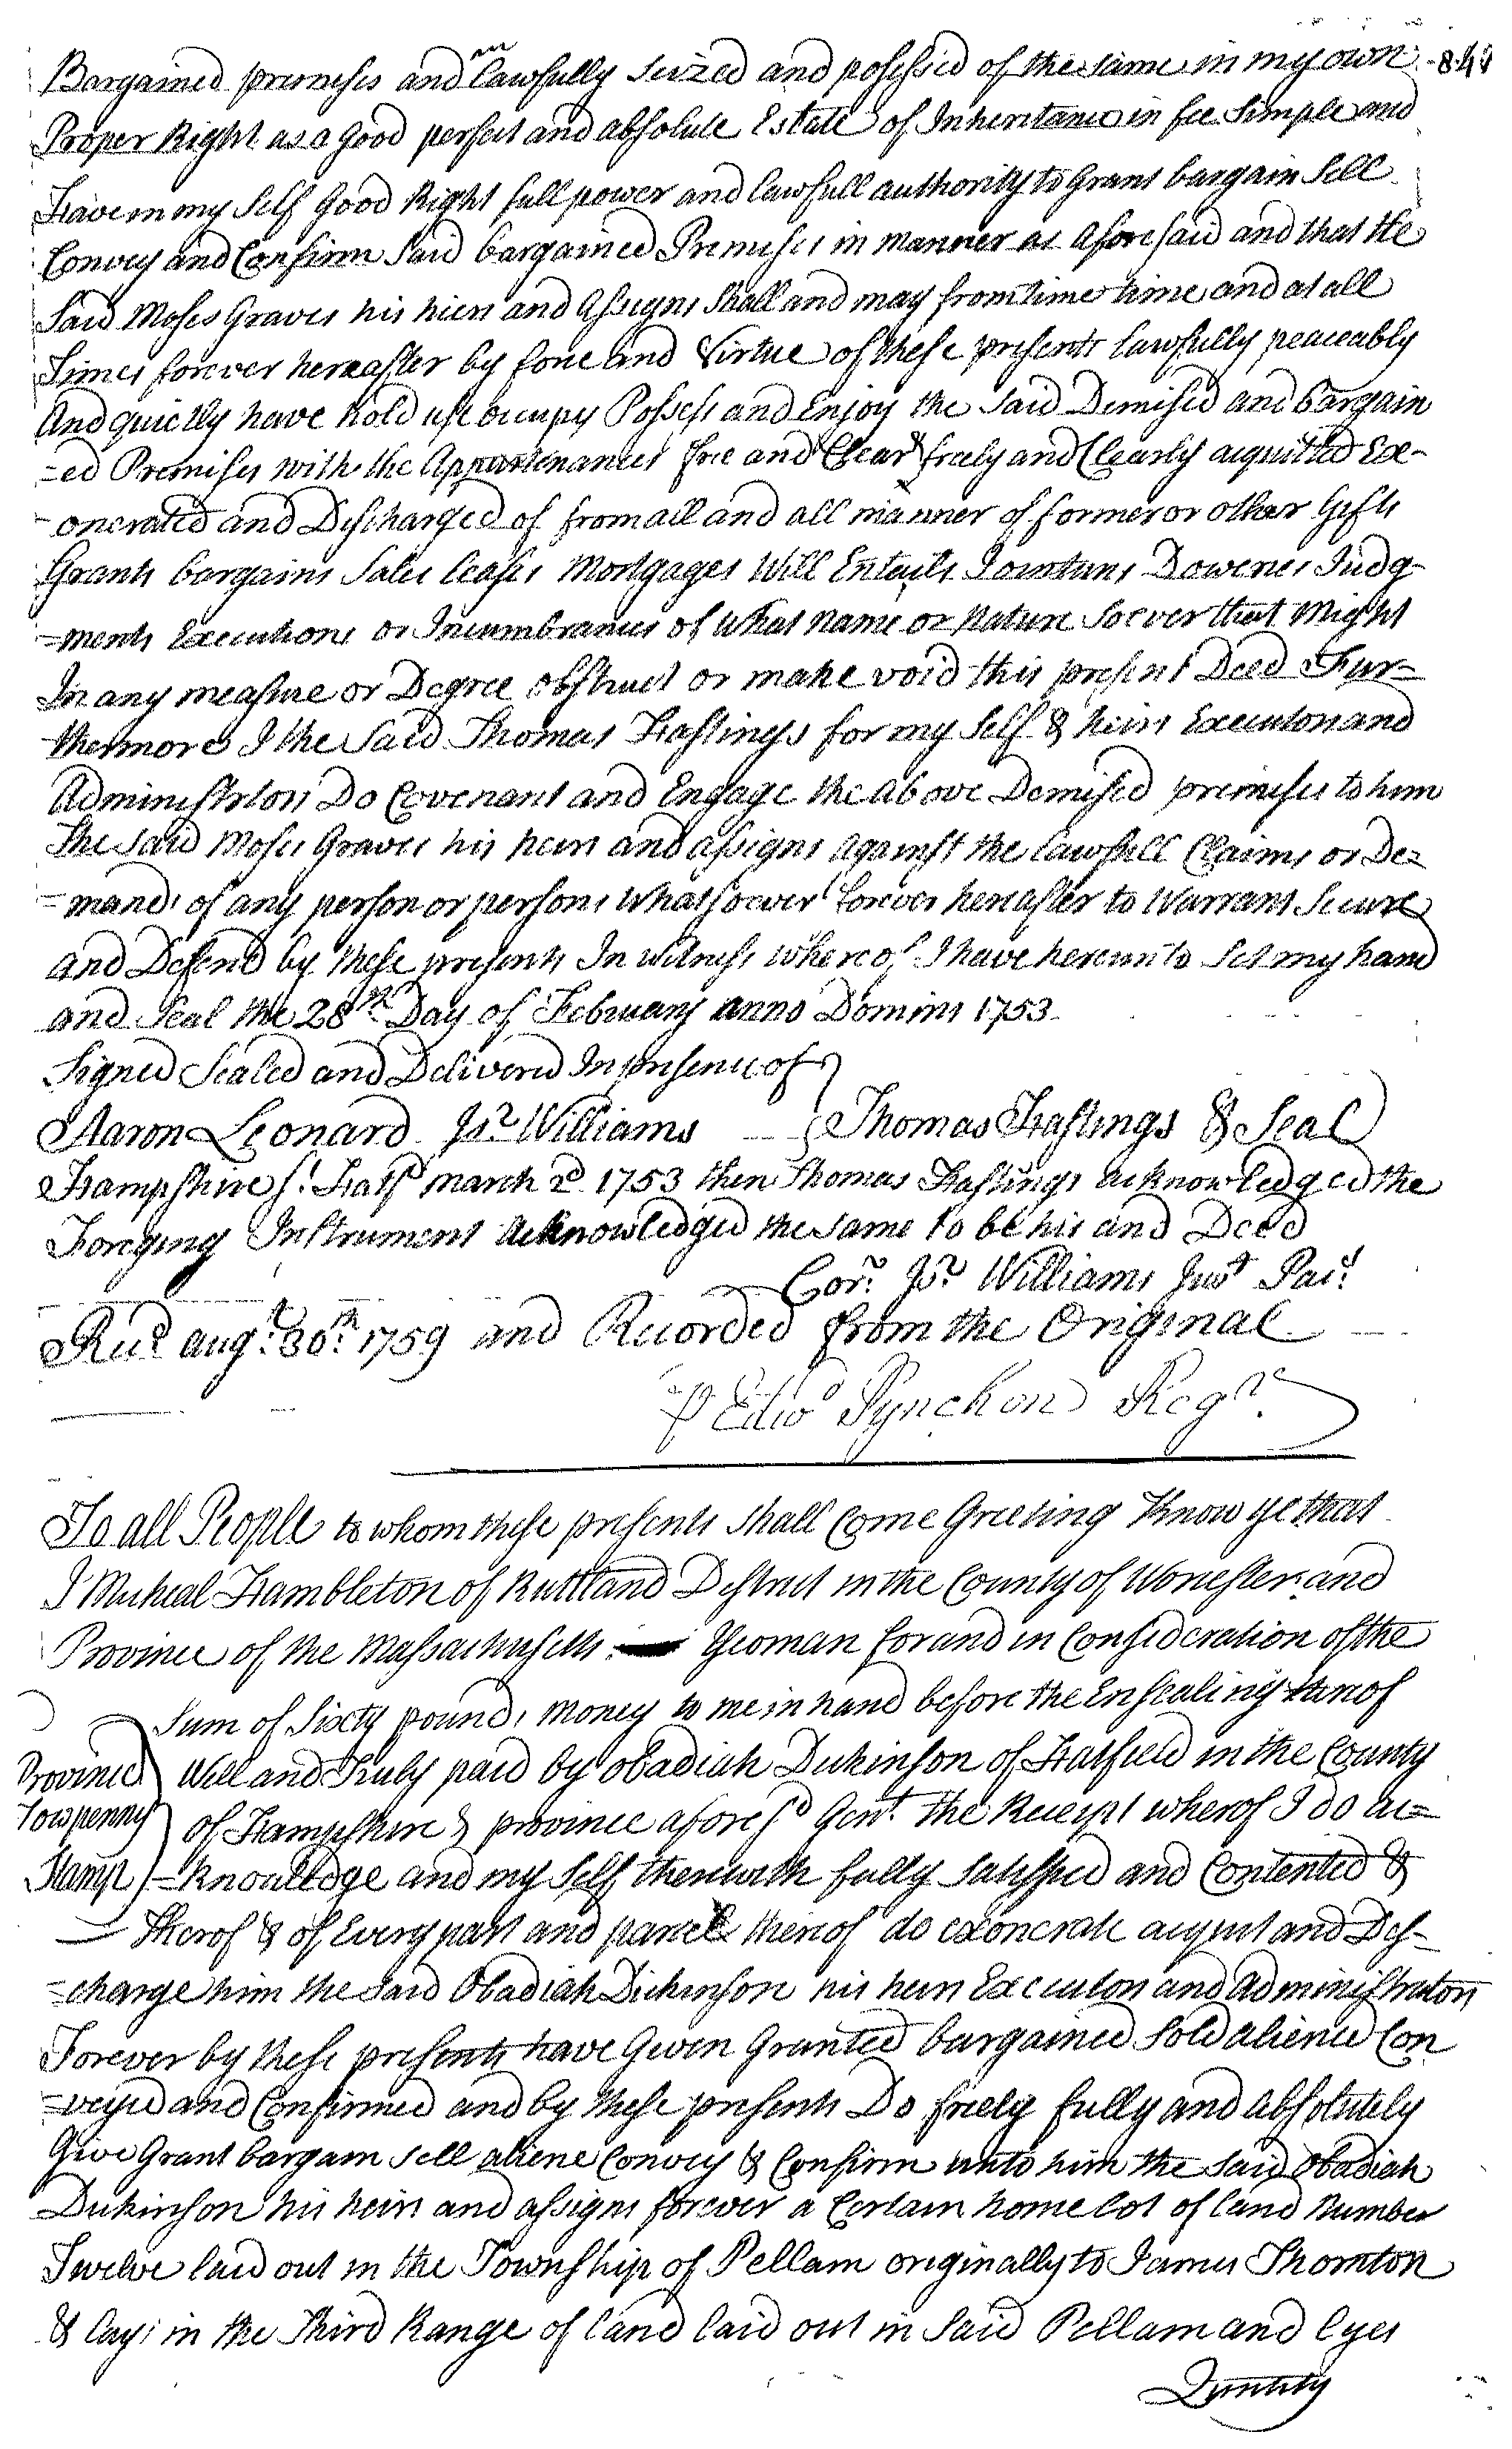 Bargained premises and am lawfully seized and possessed of the same in my own
Proper Right as a good perfect and absolute Estate of Inheritance in fee Simple and
Have in my Self Good Right full power and lawfull authority to Grant bargain Sell
Convey and Confirm Said bargained Premises in manner as aforesaid and that the
Said Moses Graves his heirs and Assigns Shall and may from time time and at all
Times forever hereafter by force and Virtue of these presents lawfully peaceably
And quietly have hold use occupy Possess and Enjoy the Said Demised and bargain
=ed Premises with the Appurtenances free and Clear & freely and Clearly acquitted Exe-
-onerated and Discharged of from all and all manner of former or other Gifts
Grants bargains Sales leases Mortgages Will Entails Jointures Doweries Judg-
=ments Executions or Incumbrances of what name or nature Soever that Might
In any measure or Degree obstruct or make void this present Deed Fur-
thermore I the Said Thomas Hastings for my Self & heirs Executors and
Administrators Do Covenant and Engage the above Demised premises to him
The said Moses Graves his heirs and assigns against the lawfull Claims or De=
=mands of any person or persons Whatsoever forever hereafter to Warrant Secure
and Defend by these presents In witness whereof I have hereunto Set my hand
and Seal the 28th Day of February anno Domini 1753
Signed Sealed and Delivered In presence of
Aaron Leonard Jsr Williams Thomas Hastings & Seal
Hampshire ss. Hatfd March 2d 1753 then Thomas Hastings acknowledged the
Foregoing Instrument acknowledged the same to be his and Deed
Cor. Jsr Williams Just Pacs
Recd augt. 30th. 1759 and Recorded from the Original
P Edwd Pynchon Regr.
To all People to whom these presents shall Come Greeting Know ye that
I Micheal Hambleton of Ruttland District in the County of Worcester and
Province of the Massachusetts Yeoman for and in Consideration of the
Sum of Sixty pounds money to me in hand before the Ensealing thereof
Province
Towpenny
Stamp
Well and Truly paid by obadiah Dickinson of Hatfield in the County
of Hampshire & province aforesd Gent. the Receipt wherof I do ac=
=knowledge and my Self therewith fully Satisfied and Contented &
Therof & of Every part and parcel thereof do exonerate acquit and Dis-
=charge him the said Obadiah Dickinson his heirs Executors and administrators
Forever by these presents have Given Granted bargained Sold aliened Con
=veyed and Confirmed and by these presents Do freely fully and absolutely
Give Grant bargain Sell aliene Convey & Confirm unto him the said Obadiah
Dickinson his heirs and assigns forever a Certain home lot of land Number
Twelve laid out in the Township of Pellam originally to James Thornton
& lays in the Third Range of land laid out in Said Pellam and lyes
Quantity